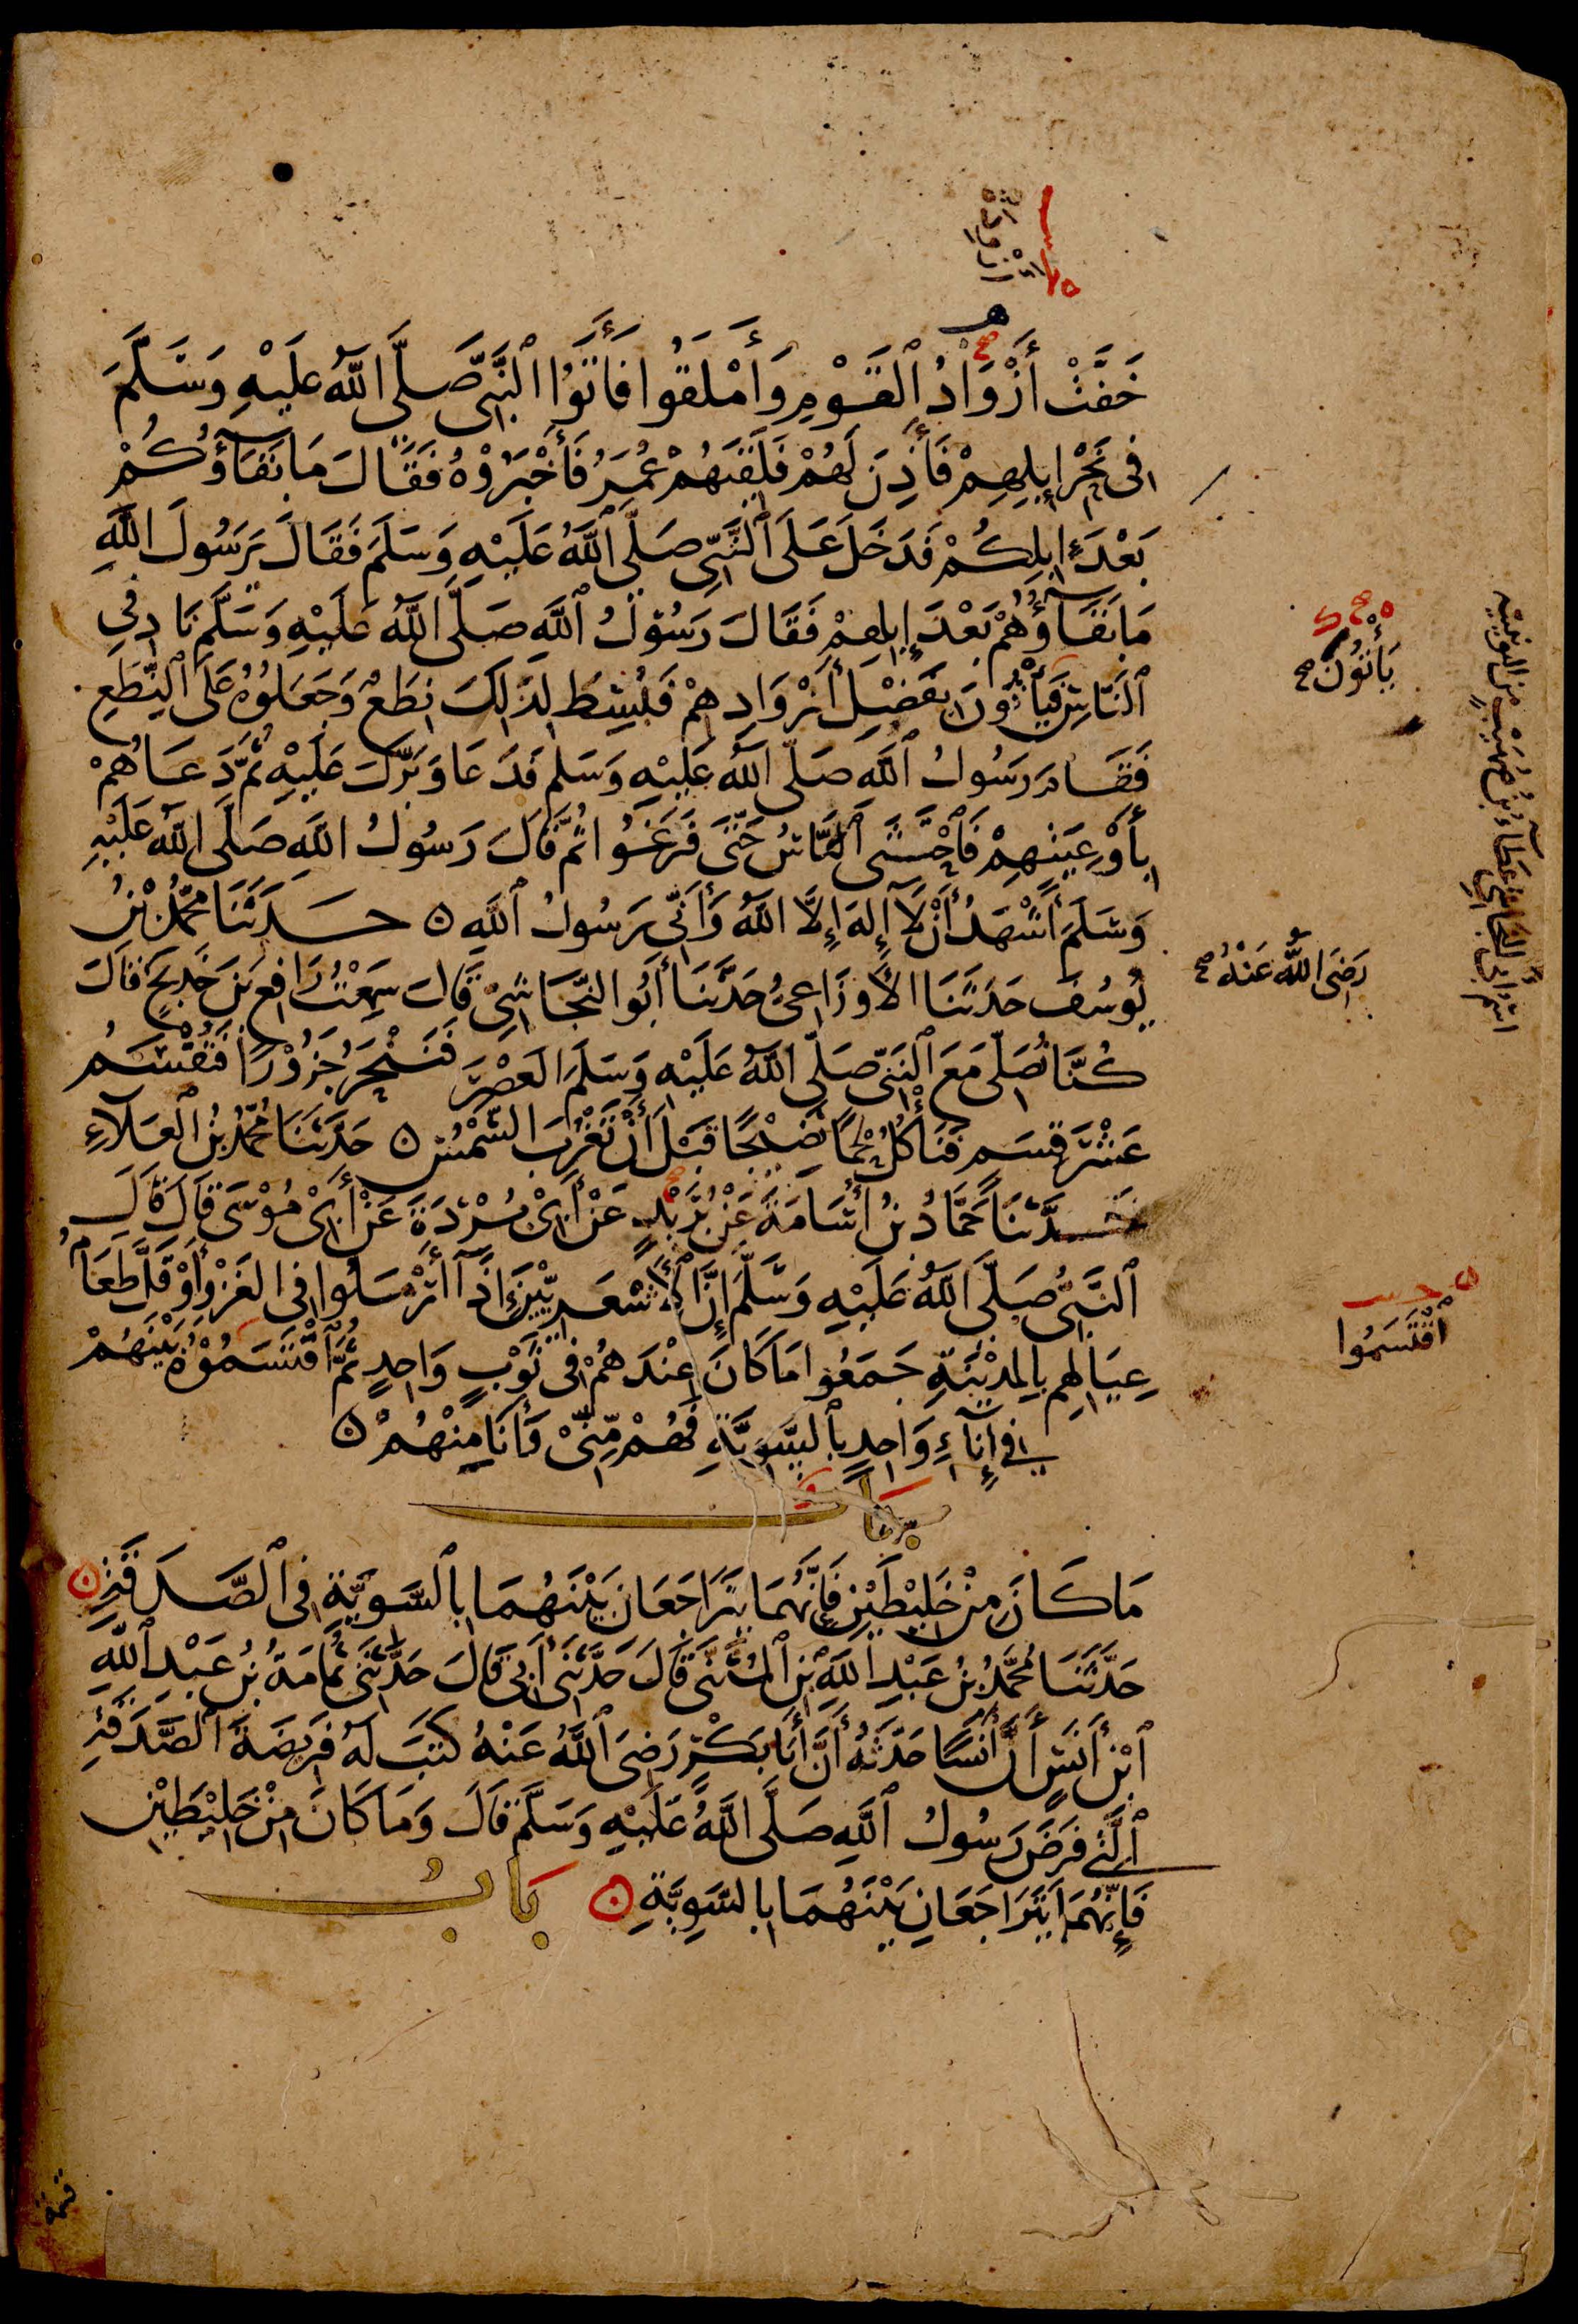 أَزْوِدَةُ
خَفَّتْ أَزْوَادُ ٱلْقَوْمِ وَأَمْلَقُوا فَأَتَوُا ٱلنَّبِيَّ صَلَّى اللَّهُ عَلَيْهِ وَسَلَّمَ
فِى نَحْرِ إِبِلِهِمْ فَأَذِنَ لَهُمْ فَلَقِيَهُمْ عُمَرُ فَأَخْبَرُوْهُ فَقَالَ مَا بَقَآؤُكُمْ
بَعْدَ إِبِلِكُمْ فَدَخَلَ عَلَى ٱلنَّبِيِّ صَلَّى ٱللَّهُ عَلَيْهِ وَسَلَّمَ فَقَالَ يَرَسُولَ اللَّهِ
مَا بَقَآؤُهُمْ بَعْدَ إِبِلِهِمْ فَقَالَ رَسُوْلُ ٱللَّهِ صَلَّى اللَّهُ عَلَيْهِ وَسَلَّمَ نَادِ فِي
ٱلنَّاسِ فَيَأْتُونَ بِفَضْلِ أَزْوَادِهِمْ فَبُسِطَ لِذَٰلِكَ نِطَعٌ وَجَعَلُوْهُ عَلَى ٱلنِّطَعِ
فَقَامَ رَسُولُ ٱللَّهِ صَلَّى اللَّهُ عَلَيْهِ وَسَلَّمَ فَدَعَا وَبَرَّكَ عَلَيْهِ ثُمَّ دَعَاهُمْ
بِأَوْعِيَتِهِمْ فَٱحْتَثَى ٱلنَّاسُ حَتَّى فَرَغُوا ثُمَّ قَالَ رَسُولُ اللَّهِ صَلَّى اللَّهُ عَلَيْهِ
وَسَلَّمَ أَشْهَدُ أَنْ لَآ إِلٰهَ إِلَّا اللَّهُ وَأَنِّي رَسُولُ ٱللَّهِ ۝ حَدَّثَنَا مُحَمَّدُ بْنُ
يُوسُفَ حَدَّثَنَا الْأَوْزَاعِيُّ حَدَّثَنَا أَبُو النَّجَاشِيِّ قَالَ سَمِعْتُ رَافِعَ بْنَ خَدِيجٍ قَالَ
كُنَّا نُصَلِّى مَعَ ٱلنَّبِيِّ صَلَّى اللَّهُ عَلَيْهِ وَسَلَّمَ الْعَصْرَ فَنَنْحَرُ جَزُوْرًا فَتُقْسَمُ
عَشْرَ قِسَمٍ فَنَأْكُلُ لَحْمًا نَضِيْجًا قَبْلَ أَنْ تَغْرُبَ الشَّمْسُ ۝ حَدَّثَنَا مُحَمَّدُ بْنُ الْعَلَآءِ
حَدَّثَنَا حَمَّادُ بْنُ أُسَامَةَ عَنْ بُرَيْدٍ عَنْ أَبِيْ بُرْدَةَ عَنْ أَبِيْ مُوْسَى قَالَ قَالَ
ٱلنَّبِيُّ صَلَّى اللَّهُ عَلَيْهِ وَسَلَّمَ إِنَّ ٱلْأَشْعَرِيِّيْنَ إِذَآ أَرْمَلُوا فِى الْغَزْوِ أَوْ قَلَّ طَعَامُ
عِيَالِهِمْ بِالْمَدِيْنَةِ جَمَعُوا مَا كَانَ عِنْدَهُمْ فِى ثَوْبٍ وَاحِدٍ ثُمَّ ٱقْتَسَمُوْهُ بَيْنَهُمْ
فِي إِنَآءٍ وَاحِدٍ بِٱلسَّوِيَّةِ فَهُمْ مِّنِّيْ وَأَنَا مِنْهُمْ ۝
بَابُ
مَا كَانَ مِنْ خَلِيْطَيْنِ فَإِنَّهُمَا يَتَرَاجَعَانِ بَيْنَهُمَا بِالسَّوِيَّةِ فِى ٱلصَّدَقَةِ ۝
حَدَّثَنَا مُحَمَّدُ بْنُ عَبْدِ اللَّهِ بْنِ ٱلْمُثَنَّى قَالَ حَدَّثَنِى أَبِى قَالَ حَدَّثَنِى ثُمَامَةُ بْنُ عَبْدِ ٱللَّهِ
ٱبْنِ أَنَسٍ أَنَّ أَنَسًا حَدَّثَهُ أَنَّ أَبَا بَكْرٍ رَضِىَ ٱللَّهُ عَنْهُ كَتَبَ لَهُ فَرِيضَةَ ٱلصَّدَقَةِ
ٱلَّتِي فَرَضَ رَسُولُ ٱللَّهِ صَلَّى اللَّهُ عَلَيْهِ وَسَلَّمَ قَالَ وَمَا كَانَ مِنْ خَلِيْطَيْنِ
فَإِنَّهُمَا يَتَرَاجَعَانِ بَيْنَهُمَا بِالسَّوِيَّةِ ۝ بَابُ
يَأْتُونَ صح
رَضِىَ اللَّهُ عَنْهُ صح
ٱقْتَسَمُوا
اسم أبي النجاشي عطاء بن صهيب من اليونينية
قسمة